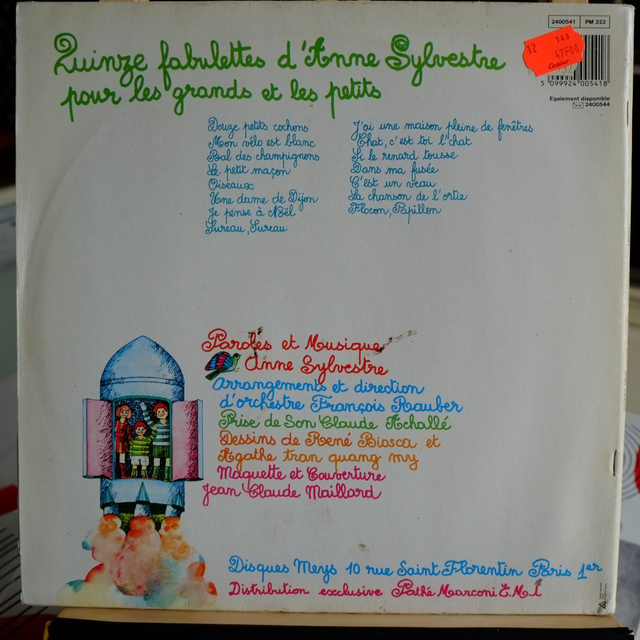 Quinze fabulettes d'Anne Sylvestre
pour les grands et les petits
2400541 PM 222
5 099924 005418
Egalement disponible
2400544
Douze petits cochons
Mon vélo est blanc
Bal des champignons
Le petit maçon
Oiseaux
Une dame de Dijon
Je pense à Noël
Sureau, Sureau
J'ai une maison pleine de fenêtres
Chat, c'est toi l'chat
Si le renard tousse
Dans ma fusée
C'est un veau
La chanson de l'ortie
Flocon, Papillon
Paroles et Musique
Anne Sylvestre
Arrangements et direction
d'orchestre François Rauber
Prise de Son Claude Achallé
Dessins de René Biosca et
Agathe tran quang my
Maquette et Couverture
Jean Claude Maillard
Disques Meys 10 rue Saint Florentin Paris 1er
Distribution exclusive Pathé Marconi E.M.I